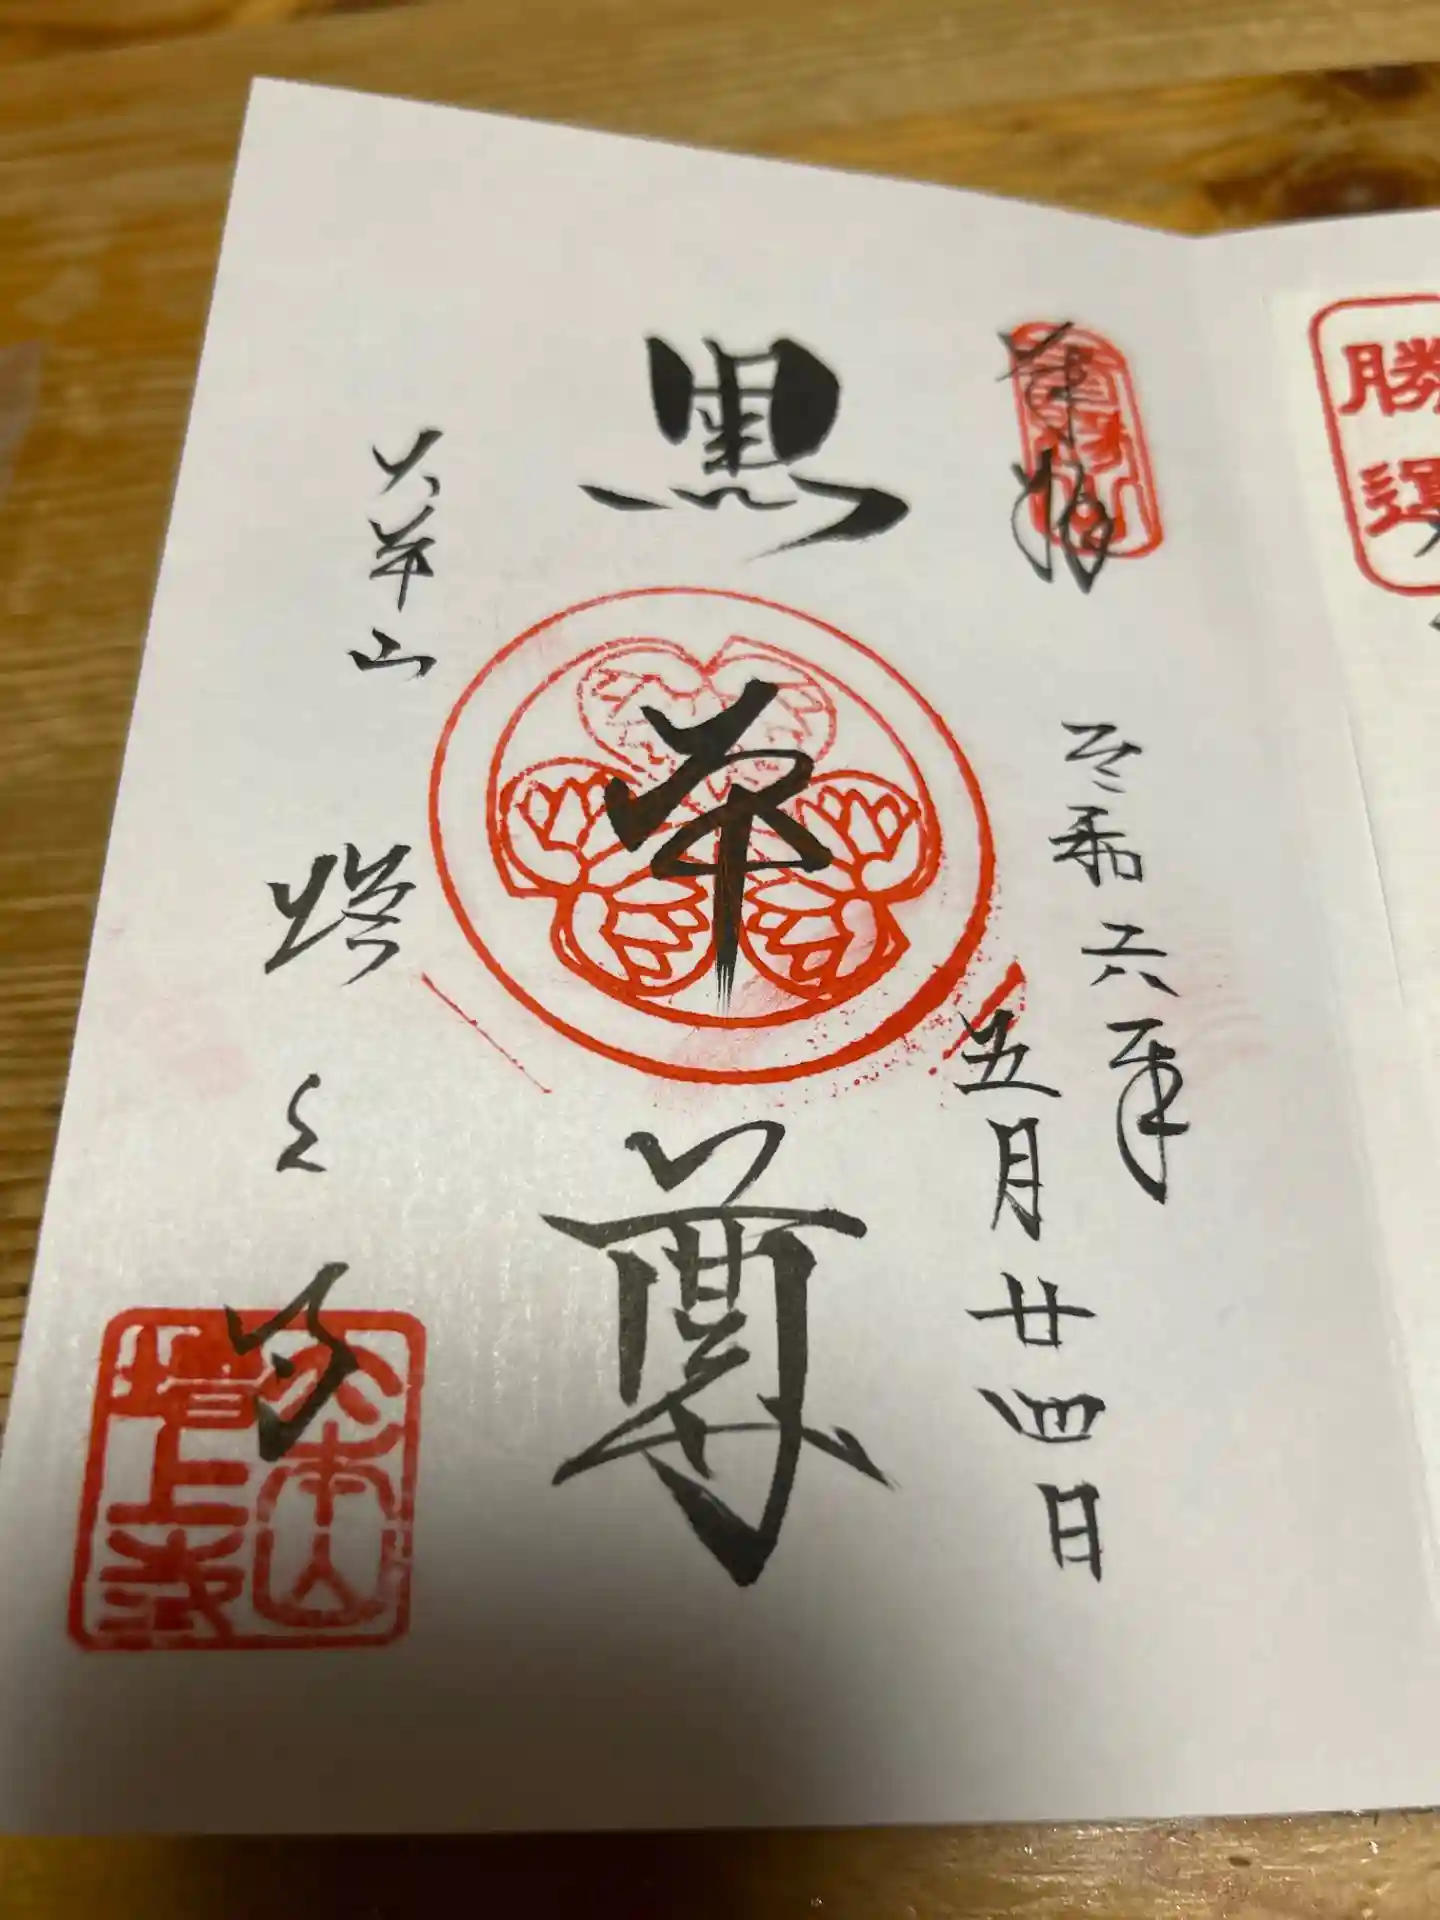 勝運
奉拝
令和六年
五月廿四日
黒本尊
大本山
増上寺
大本山
増上寺